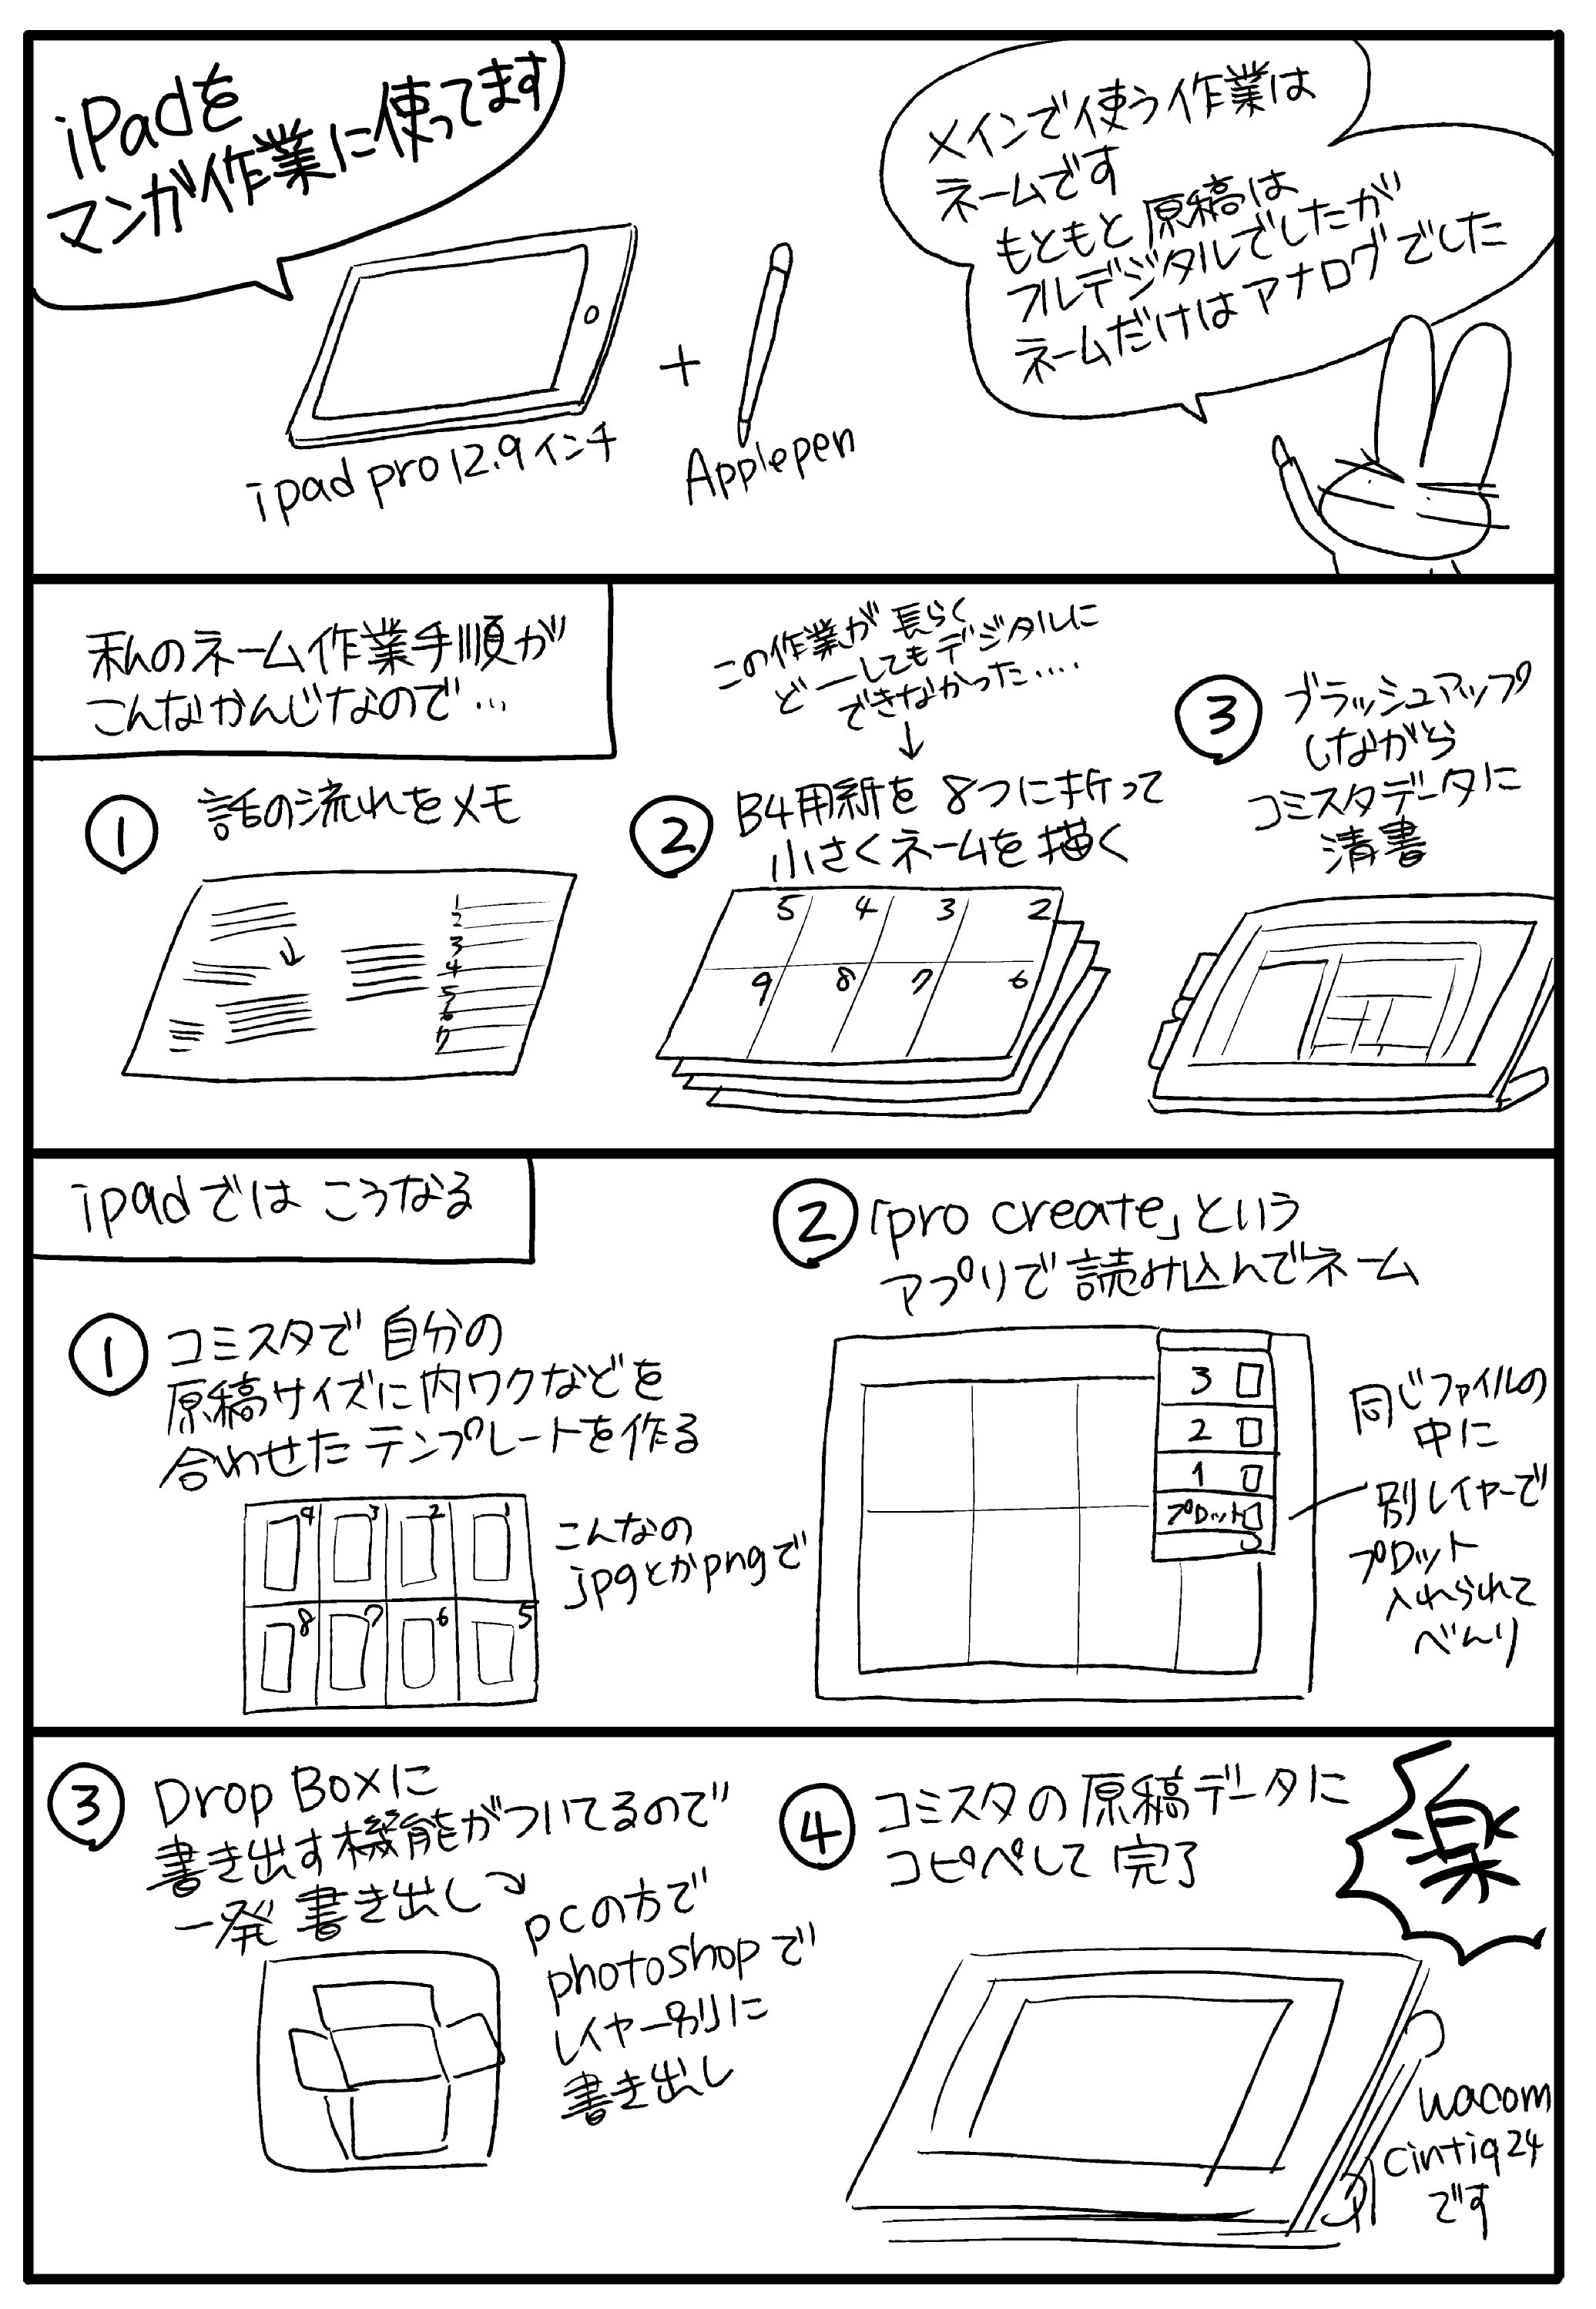 iPadを
マンガ作業に使ってます
ipad pro 12.9インチ
+
Applepen
メインで使う作業は
ネームです
もともと原稿は
フルデジタルでしたが
ネームだけはアナログでした
私のネーム作業手順が
こんなかんじなので…
① 話の流れをメモ
1
2
3
4
5
6
7
この作業が長らく
どーしてもデジタルに
できなかった.....
↓
② B4用紙を8つに折って
小さくネームを描く
5 4 3 2
9 8 7 6
③ ブラッシュアップ
しながら
コミスタデータに
清書
ipadではこうなる
① コミスタで自分の
原稿サイズに内ワクなどを
合わせたテンプレートを作る
4 3 2 1
8 7 6 5
こんなの
jpgとかpngで
② 「pro create」という
アプリで読み込んでネーム
3
2
1
プロット
同じファイルの
中に
別レイヤーで
プロット
入れられて
べんり
③ Drop Boxに
書き出す機能がついてるので
一発書き出し
pcの方で
photoshopで
レイヤー別に
書き出し
④ コミスタの原稿データに
コピペして完了
楽
wacom
cintiq24
です